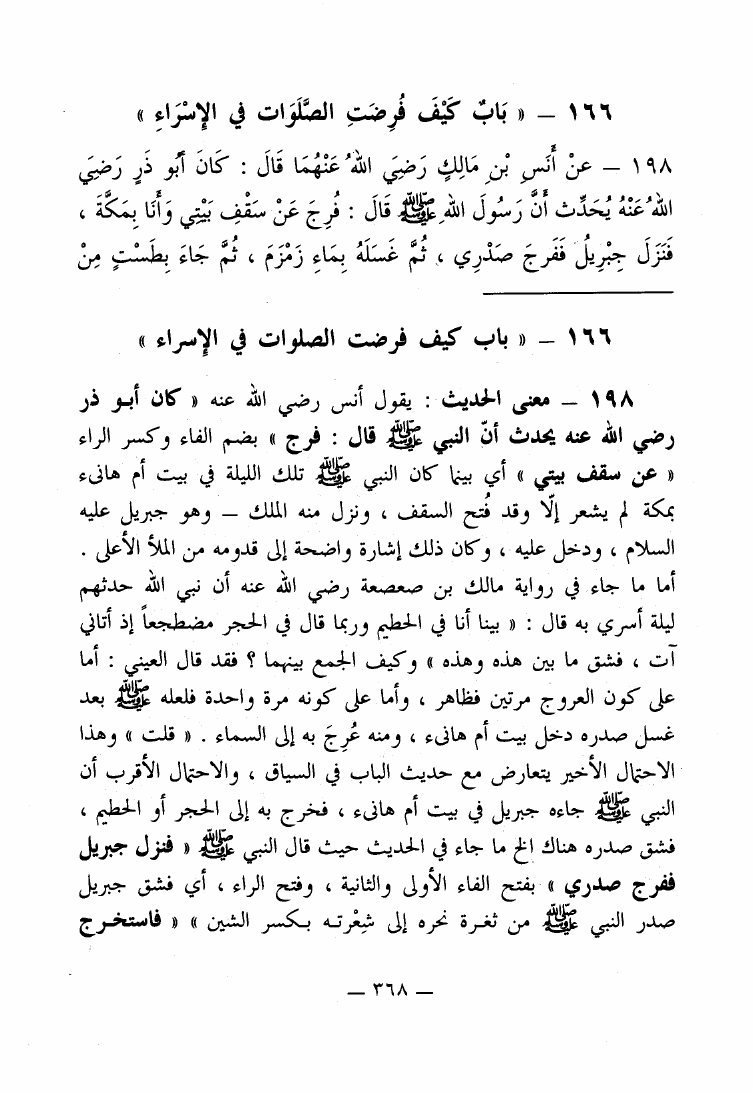 ١٦٦ – « بَابٌ كَيْفَ فُرِضَتِ الصَّلَوَات في الإِسْرَاءِ »
١٩٨ – عَنْ أَنَسِ بْنِ مَالِكٍ رَضِيَ اللهُ عَنْهُمَا قَالَ : كَانَ أَبُو ذَرٍ رَضِيَ
اللهُ عَنْهُ يُحَدِّث أَنَّ رَسُولَ اللهِ ﷺ قَالَ : فُرِجَ عَنْ سَقْفِ بَيْتِي وَأَنَا بِمَكَّةَ ،
فَنَزَلَ جِبْرِيلُ فَفَرجَ صَدْرِي ، ثُمَّ غَسَلَهُ بِمَاءِ زَمْزَمَ ، ثُمَّ جَاءَ بِطَسْتٍ مِنْ
١٦٦ – « باب كيف فرضت الصلوات في الإسراء »
١٩٨ – معنى الحديث : يقول أنس رضي الله عنه « كان أبو ذر
رضي الله عنه يحدث أنّ النبي ﷺ قال : فرج » بضم الفاء وكسر الراء
« عن سقف بيتي » أي بينما كان النبي ﷺ تلك الليلة في بيت أم هانىء
بمكة لم يشعر إلّا وقد فُتح السقف ، ونزل منه الملك – وهو جبريل عليه
السلام ، ودخل عليه ، وكان ذلك إشارة واضحة إلى قدومه من الملأ الأعلى .
أما ما جاء في رواية مالك بن صعصعة رضي الله عنه أن نبي الله حدثهم
ليلة أسري به قال : « بينا أنا في الحطيم وربما قال في الحجر مضطجعاً إذ أتاني
آت ، فشق ما بين هذه وهذه » وكيف الجمع بينهما ؟ فقد قال العيني : أما
على كون العروج مرتين فظاهر ، وأما على كونه مرة واحدة فلعله ﷺ بعد
غسل صدره دخل بيت أم هانىء ، ومنه عُرِجَ به إلى السماء . « قلت » وهذا
الاحتمال الأخير يتعارض مع حديث الباب في السياق ، والاحتمال الأقرب أن
النبي ﷺ جاءه جبريل في بيت أم هانىء ، فخرج به إلى الحجر أو الحطيم ،
فشق صدره هناك الخ ما جاء في الحديث حيث قال النبي ﷺ « فنزل جبريل
ففرج صدري » بفتح الفاء الأولى والثانية ، وفتح الراء ، أي فشق جبريل
صدر النبي ﷺ من ثغرة نحره إلى شِعْرته بكسر الشين » « فاستخرج
– ٣٦٨ –